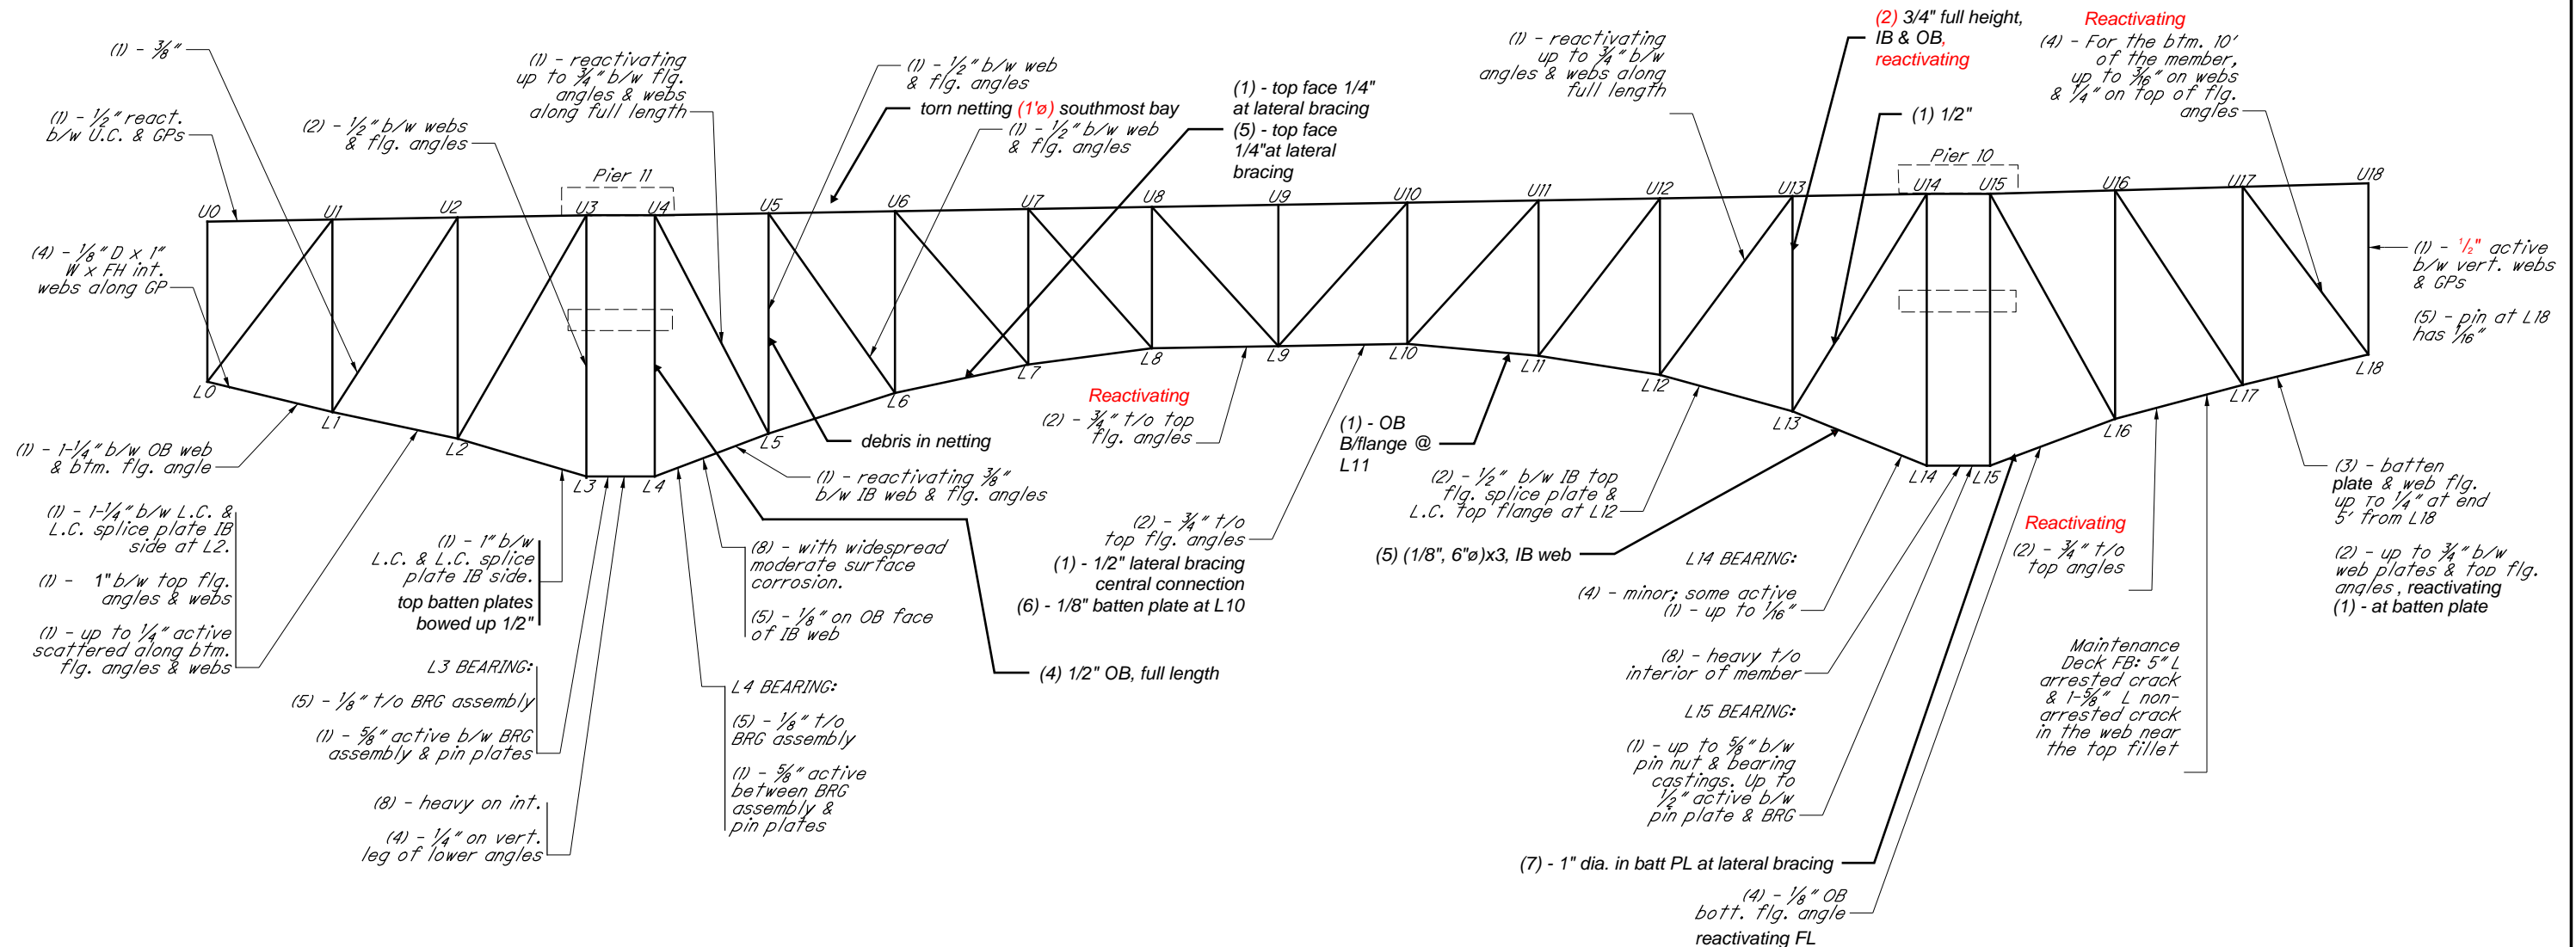 (1) - 3/8"
(1) - 1/2" react.
b/w U.C. & GPs
(2) - 1/2" b/w webs
& flg. angles
(1) - reactivating
up to 3/4" b/w flg.
angles & webs
along full length
(1) - 1/2" b/w web
& flg. angles
torn netting (1'ø) southmost bay
(1) - 1/2" b/w web
& flg. angles
(1) - top face 1/4"
at lateral bracing
(5) - top face
1/4"at lateral
bracing
(1) - reactivating
up to 3/4" b/w
angles & webs along
full length
(2) 3/4" full height,
IB & OB,
reactivating
(1) 1/2"
Reactivating
(4) - For the btm. 10'
of the member,
up to 3/16" on webs
& 1/4" on top of flg.
angles
Pier 11
Pier 10
U0 U1 U2 U3 U4 U5 U6 U7 U8 U9 U10 U11 U12 U13 U14 U15 U16 U17 U18
(4) - 1/8" D x 1"
W x FH int.
webs along GP
(1) - 1/2" active
b/w vert. webs
& GPs
(5) - pin at L18
has 1/16"
L0 L1 L2 L3 L4 L5 L6 L7 L8 L9 L10 L11 L12 L13 L14 L15 L16 L17 L18
(1) - 1-1/4" b/w OB web
& btm. flg. angle
(1) - 1-1/4" b/w L.C. &
L.C. splice plate IB
side at L2.
(1) - 1" b/w top flg.
angles & webs
(1) - up to 1/4" active
scattered along btm.
flg. angles & webs
(1) - 1" b/w
L.C. & L.C. splice
plate IB side.
top batten plates
bowed up 1/2"
L3 BEARING:
(5) - 1/8" t/o BRG assembly
(1) - 5/8" active b/w BRG
assembly & pin plates
(8) - heavy on int.
(4) - 1/4" on vert.
leg of lower angles
debris in netting
(1) - reactivating 3/8"
b/w IB web & flg. angles
(8) - with widespread
moderate surface
corrosion.
(5) - 1/8" on OB face
of IB web
(4) 1/2" OB, full length
L4 BEARING:
(5) - 1/8" t/o
BRG assembly
(1) - 5/8" active
between BRG
assembly &
pin plates
Reactivating
(2) - 3/4" t/o top
flg. angles
(2) - 3/4" t/o
top flg. angles
(1) - 1/2" lateral bracing
central connection
(6) - 1/8" batten plate at L10
(1) - OB
B/flange @
L11
(2) - 1/2" b/w IB top
flg. splice plate &
L.C. top flange at L12
(5) (1/8", 6"ø)x3, IB web
L14 BEARING:
(4) - minor; some active
(1) - up to 1/16"
(8) - heavy t/o
interior of member
L15 BEARING:
(1) - up to 5/8" b/w
pin nut & bearing
castings. Up to
1/2" active b/w
pin plate & BRG
(7) - 1" dia. in batt PL at lateral bracing
(4) - 1/8" OB
bott. flg. angle
reactivating FL
Reactivating
(2) - 3/4" t/o
top angles
Maintenance
Deck FB: 5" L
arrested crack
& 1-5/8" L non-
arrested crack
in the web near
the top fillet
(3) - batten
plate & web flg.
up to 1/4" at end
5' from L18
(2) - up to 3/4" b/w
web plates & top flg.
angles, reactivating
(1) - at batten plate